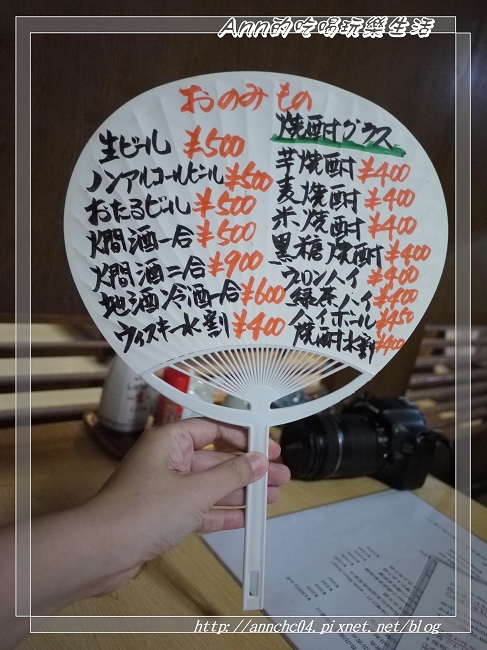 Ann的吃喝玩樂生活
おのみもの
生ビール ¥500
ノンアルコールビール ¥500
おたるビール ¥500
燗酒一合 ¥500
燗酒二合 ¥900
地酒冷酒一合 ¥600
ウィスキー水割 ¥400
焼酎グラス
芋焼酎 ¥400
麦焼酎 ¥400
米焼酎 ¥400
黒糖焼酎 ¥400
ウロンハイ ¥400
緑茶ハイ ¥400
ハイボール ¥450
焼酎水割 ¥400
http://annchc04.pixnet.net/blog